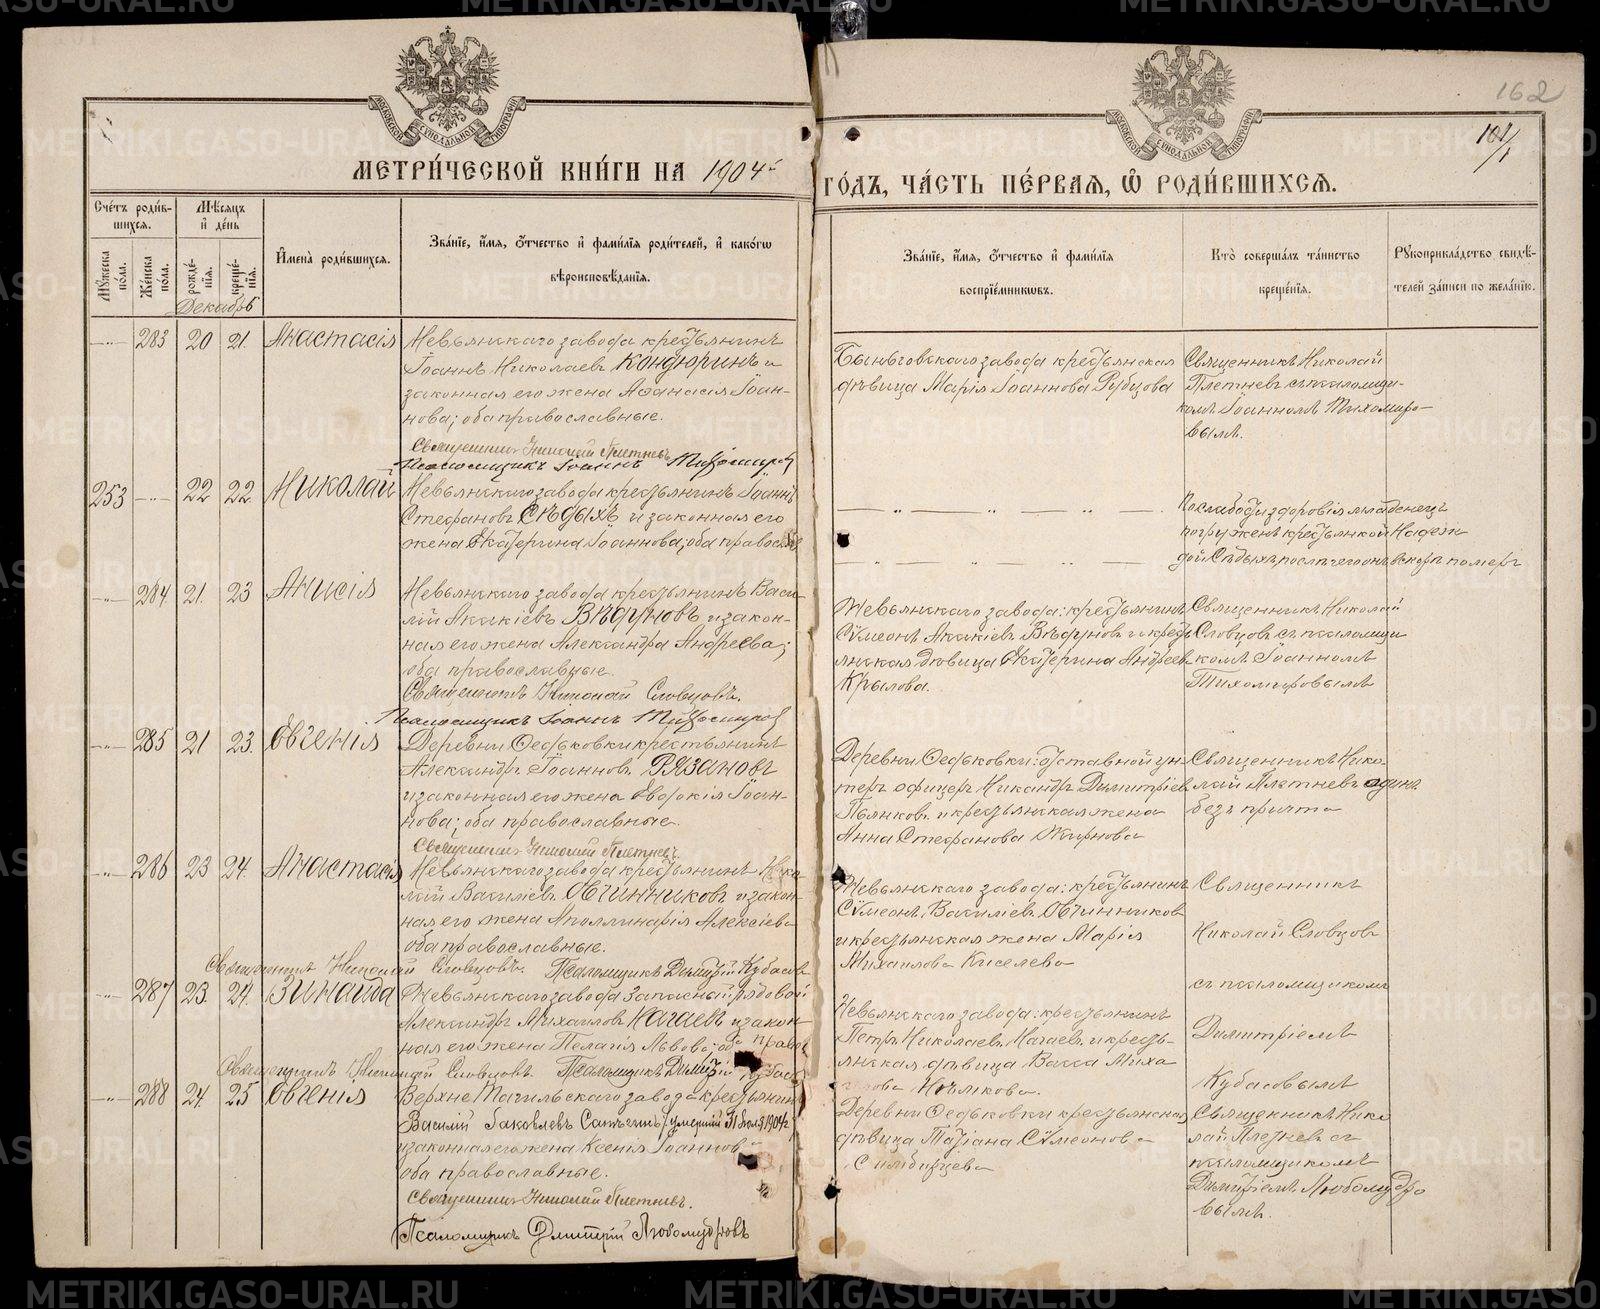 МЕТРИ́ЧЕСКОЙ КНИ́ГИ НА 1904й
ГО́ДЪ, ЧА́СТЬ ПЕ́РВАЯ, Ѽ РОДИ́ВШИХСЯ.
162
Сче́тъ роди́в-
шихся.
Мѣ́сяцъ
и҆ де́нь
Мꙋ́жеска по́ла.
Же́нска по́ла.
рожде́-
нїя.
креще́-
нїя.
И҆мена̀ роди́вшихся.
Зва́нїе, и҆́мя, ѻ҆́тчество и҆ фами́лїя роди́телей, и҆ како́гѡ
вѣроисповѣ́данїя.
Зва́нїе, и҆́мя, ѻ҆́тчество и҆ фами́лїя
воспрїе́мникѡвъ.
Кто̀ соверша́лъ та́инство
креще́нїя.
Рꙋкоприкла́дство свидѣ́-
телей за́писи по жела́нїю.
Декабрь
283 20 21. Анастасія
Невьянскаго завода крестьянинъ
Іоаннъ Николаевъ Кондюринъ и
законная его жена Аѳанасія Іоан-
нова; оба православные.
Священникъ Николай Плетневъ
Псаломщикъ Іоаннъ Тихомировъ
Быньговскаго завода крестьянская
дѣвица Марія Іоаннова Рубцова
Священникъ Николай
Плетневъ съ псаломщи-
комъ Іоанномъ Тихомиро-
вымъ.
253 22 22 Николай
Невьянскаго завода крестьянинъ Іоаннъ
Стефановъ Сѣдыхъ и законная его
жена Екатерина Іоаннова; оба правосл
По слабости здоровія младенецъ
погруженъ крестьянкой Надеж
дой Сѣдыхъ послѣ чего онъ вскорѣ померъ
284 21. 23 Анисія
Невьянскаго завода крестьянинъ Васи-
лій Акакіевъ Вѣдуновъ и закон-
ная его жена Александра Андреева;
оба православные.
Священникъ Николай Словцовъ.
Псаломщикъ Іоаннъ Тихомировъ
Невьянскаго завода: крестьянинъ
Сѵмеонъ Акакіевъ Вѣдуновъ и кресть
янская дѣвица Екатерина Андреев
Крылова.
Священникъ Николай
Словцовъ съ псаломщи
комъ Іоанномъ
Тихомировымъ
285 21 23. Евгенія
Деревни Ѳедьковки крестьянинъ
Александръ Іоанновъ Рязановъ
и законная его жена Евдокія Іоан-
нова; оба православные.
Священникъ Николай Плетневъ.
Деревни Ѳедьковки: отставной ун-
теръ офицеръ Никандръ Димитріев
Пьянковъ и крестьянская жена
Анна Стефанова Жирнова
Священникъ Нико-
лай Плетневъ одинъ
безъ причта
286 23 24. Анастасія
Невьянскаго завода крестьянинъ Нико
лай Василіевъ Овчинниковъ и закон-
ная его жена Аполлинарія Алексіева
оба православные.
Священникъ Николай Словцовъ. Псаломщикъ Димитрій Кубасовъ
Невьянскаго завода: крестьянинъ
Сѵмеонъ Василіевъ Овчинниковъ
и крестьянская жена Марія
Михаилова Киселева
Священникъ
Николай Словцовъ
съ псаломщикомъ
Димитріемъ
Кубасовымъ
287 23. 24. Зинаида
Невьянскаго завода запасный рядовой
Александръ Михаиловъ Нагаевъ и закон-
ная его жена Пелагія Львова; оба правос
Священникъ Николай Словцовъ. Псаломщикъ Димитрій Кубасов
Невьянскаго завода: крестьянинъ
Петръ Николаевъ Нагаевъ и кресть-
янская дѣвица Васса Миха
288 24. 25 Евгенія
Верхне Тагильскаго завода крестьянинъ
Василій Іаковлевъ (умершій 31 Іюля 1904 г.)
и законная его жена Ксенія Іоаннов
оба православные.
Священникъ Николай Плетневъ.
Псаломщикъ Дмитрій Любомудровъ
Деревни Ѳедьковки крестьянская
дѣвица Татіана Сѵмеонова
Священникъ Нико
лай Плетневъ съ
псаломщикомъ
Димитріемъ Любомудро
вымъ.
METRIKI.GASO-URAL.RU